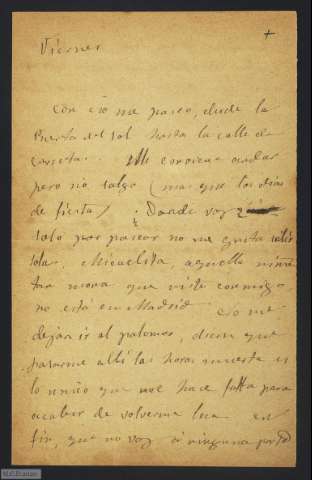 Viernes +
Con eso me paseo, desde la
Puerta del Sol hasta la calle de
Carretas. Me conviene andar
pero no salgo (mas que los dias
de fiesta). ¿Donde voy
solo por pasear no me gusta salir
sola. Micaelita, aquella
tan mona que viste conmigo
no está en Madrid. No me
dejan ir al palomar, dicen que
pasarme allí las horas muerta es
lo unico que me hace falta para
acabar de volverme loca en
fin, que no voy á ninguna parte